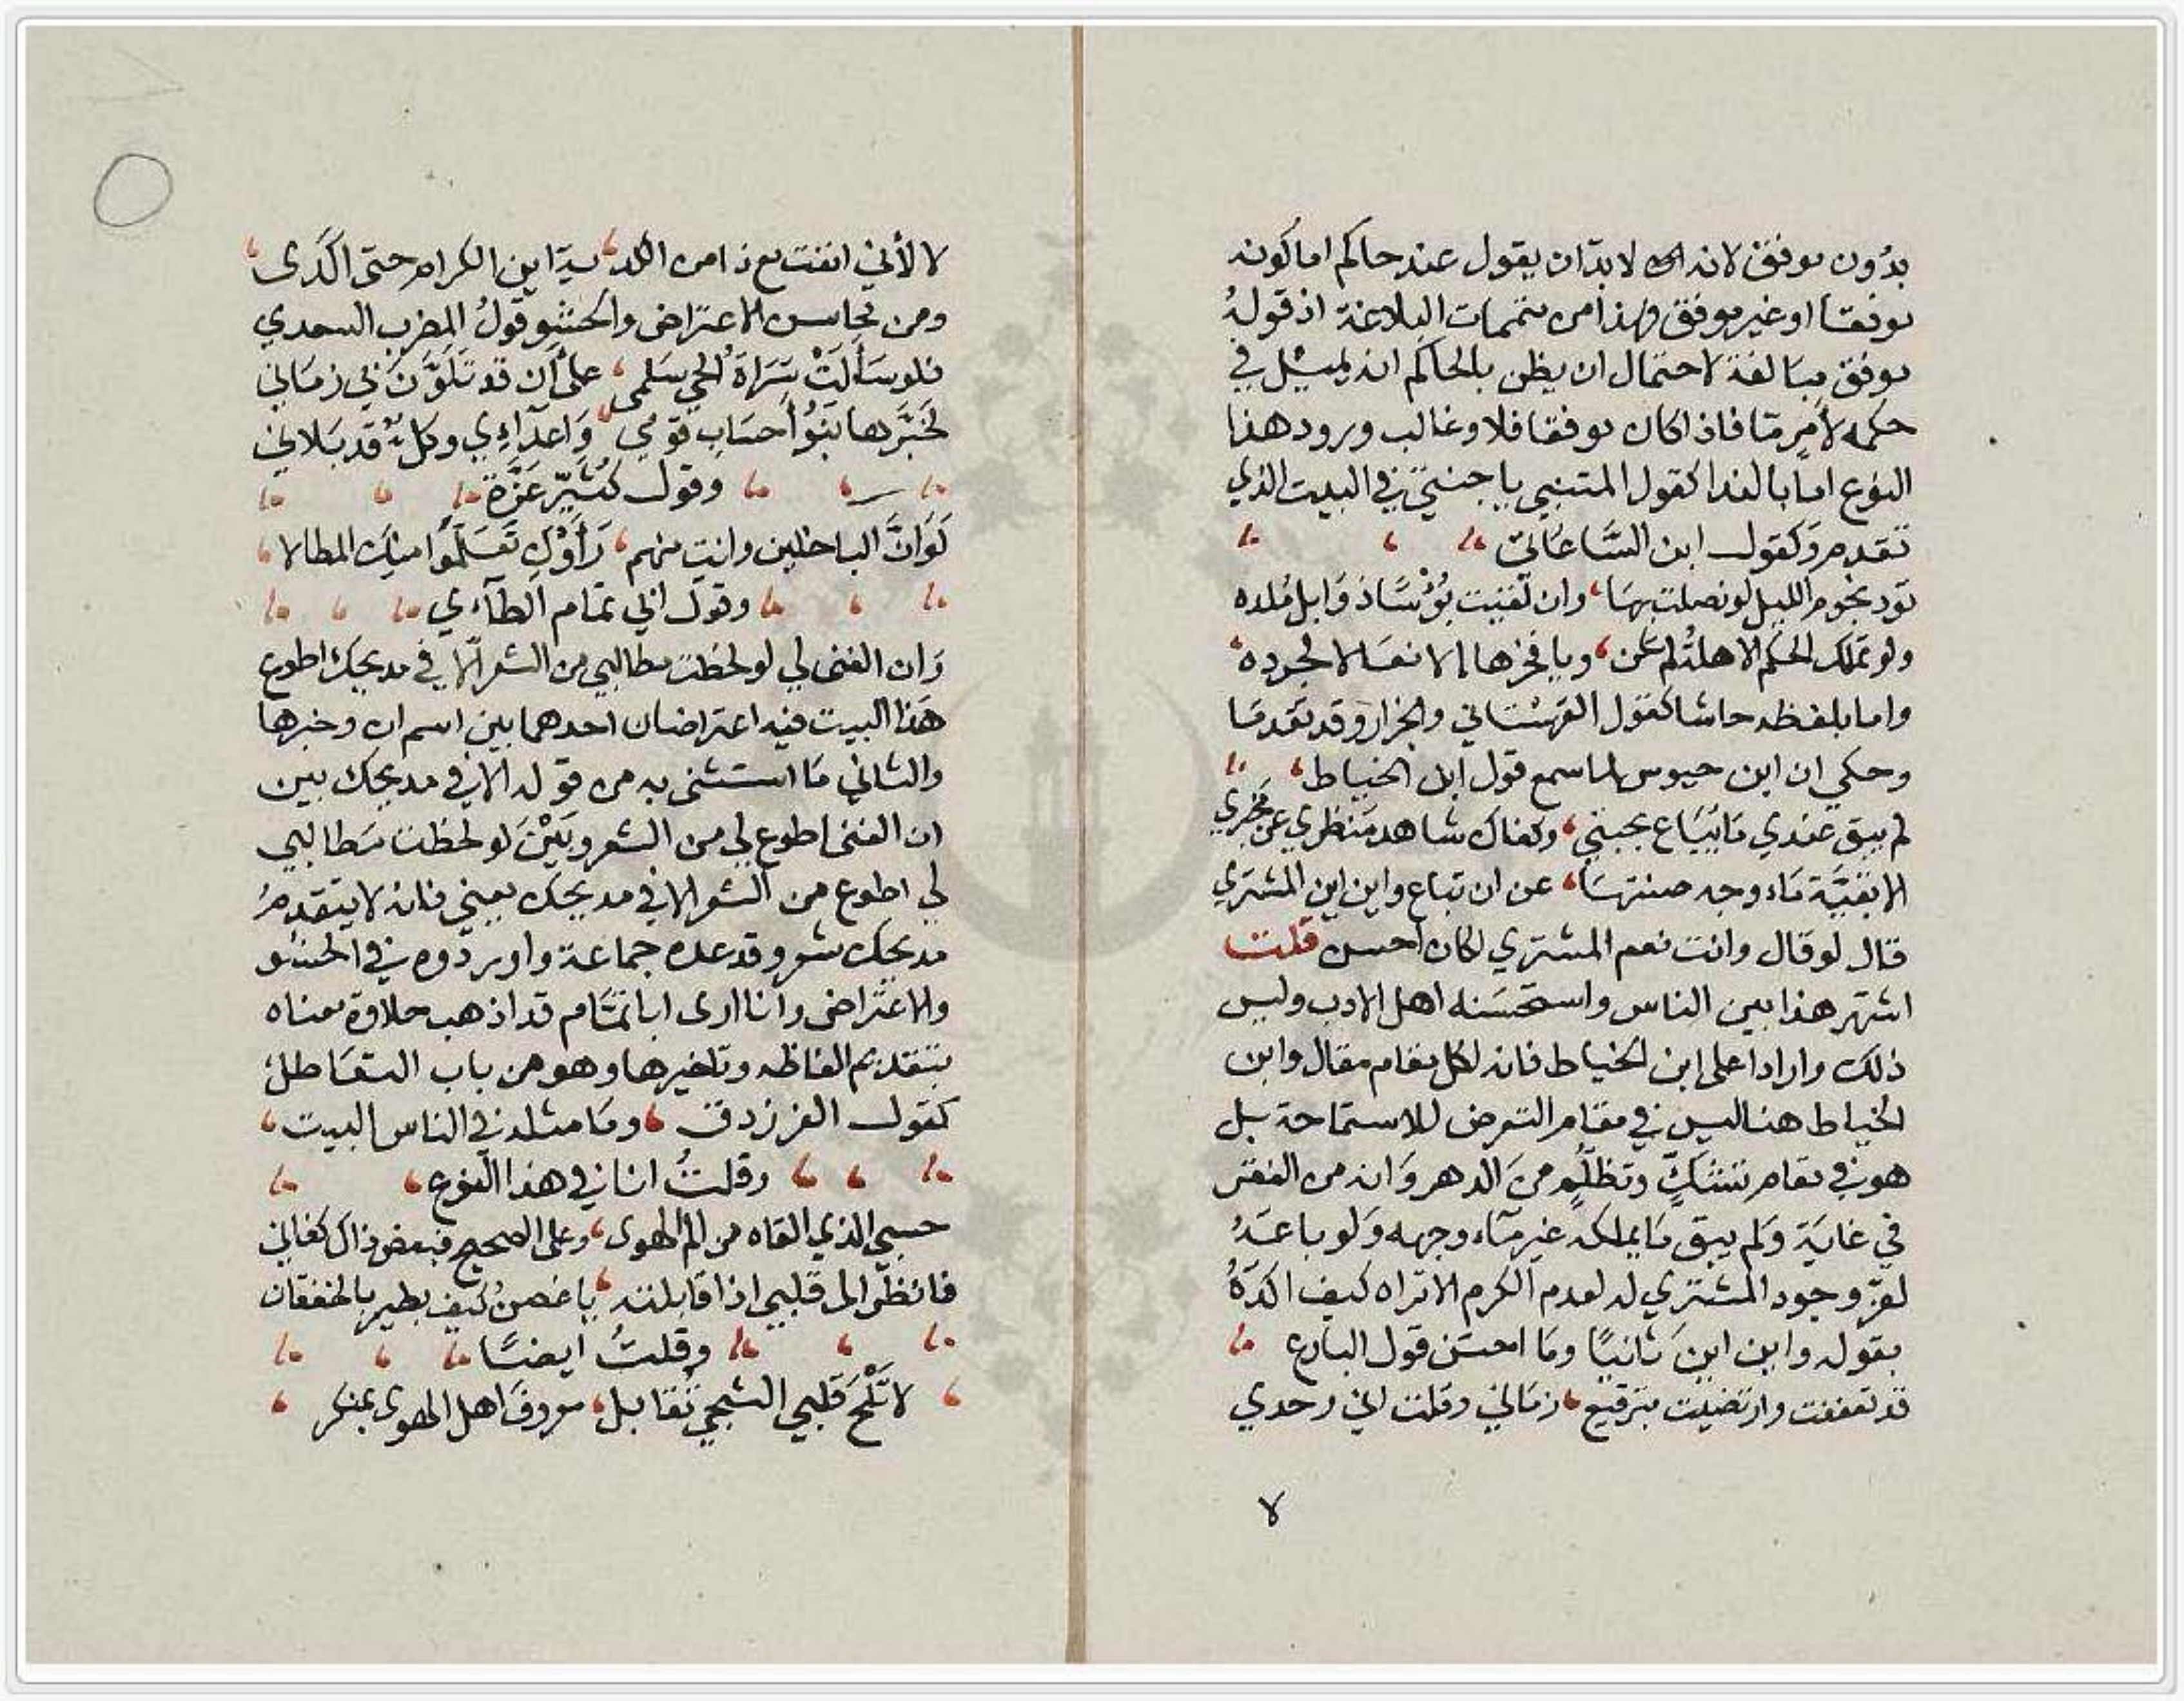 بدُون موفق لانه لا بدّ ان يقول عند حاكم اما كونه
موفقا او غير موفق وهذا من متممات البلاغة اذ قولهُ
موفق مبَالغة لاحتمال ان يظن بالحاكم انه يميل في
حكمه لأمرٍ مّا فاذا كان موفقا فلا وغالب ورود هذا
النوع اما بالفدا كقول المتنبي يا جنتي في البيت الذي
تقدم وَكقول ابن السَّاعَاتي
تود نجوم الليل لو نصلت بهَا وان لقيت بُؤْسًا ذوَابل مُلده
ولو تملك الحكم الاهلّة لم تكن ويا فخرها الا نعَالا لجرده
واما بلفظه حاشا كقول القهستاني والجزار وقد تقدمَا
وحكي ان ابن حيوس لما سمع قول ابن الخياط
لم يبق عندي مَا يُبَاع بحبّةٍ وكفاك شاهد مَنظري عن مَخْبَري
الا بقيَّة مَاء وجه صنتهَا عن ان تباع واين اين المشتري
قال لو قال وانت نعم المشتري لكان احسن قلت
اشتهر هذا بين الناس واستحسَنه اهل الادب وليس
ذلك وارادا على ابن الخياط فانه لكل مقام مقال وابن
الخياط هنا ليس في مقام التعرض للاستماحة بل
هو في مقام تشَكٍّ وتظلُّمٍ من الدهر وَانه من الفقر
في غايَة وَلم يبق مَا يملكه غير مَاء وجهه وَلو باعَهُ
لعزّ وجود المشتري له لعدم الكرم الا تراه كيف اكّدَهُ
بقوله واين اين ثانيًا ومَا احسَن قول البارع
قد تعففت وارتضيت بترقيع زمَاني وقلت اني وحدي
لا
لا لأني انفت مع ذا من الكدية اين الكرام حتى اكَدّى
ومن محاسن الاعتراض والحشو قولُ المضرب السعدي
فلو سَأَلَتْ سَرَاةَ الحي سَلمى على أن قد تَلوَّنَ بي زمَاني
لَخبَّرها بَنُو أحسَاب قومي وَاعدَاءِي وكلٌ قد بَلاني
وقول كُثَيِّر عَزَّة
لَوَ انَّ الباخلين وانتِ منهم رَأَوْكِ تعَلَّمُوا مِنكِ المطالا
وقول ابي تمام الطآءي
وَان الغنى لي لو لحظت مطالبي من الشعر الّا في مديحك اطوع
هَذا البيت فيه اعتراضان احدهما بين اسم ان وخبرها
والثاني مَا استثنى به من قوله الا في مديحك بين
ان الغنى اطوع لي من الشعر وبَيْنَ لو لحظت مَطالبي
لي اطوع من الشعر الا في مديحك يعني فانه لا يتقدمُ
مديحك شعر وقد عده جماعة واوردوه في الحشو
والاعتراض وانا ارى ابا تمّام قد اذهب حلاوة معناه
بتقديم الفاظه وتاخيرها وهو من باب التعَاظل
كقول الفرزدق ومَا مثله في الناس البيت
وقلتُ انا في هذا النوع
حسبي الذي القاه من الم الهوى وعلى الصحيح فبعض ذاك كفاني
فانظُر الى قلبي اذا قابلته يا غصنُ كيف يطير بالخفقان
وقلتُ ايضًا
لا تَلُحْ قلبي الشجي تُقابل معروفَ اهل الهوى بمنكر